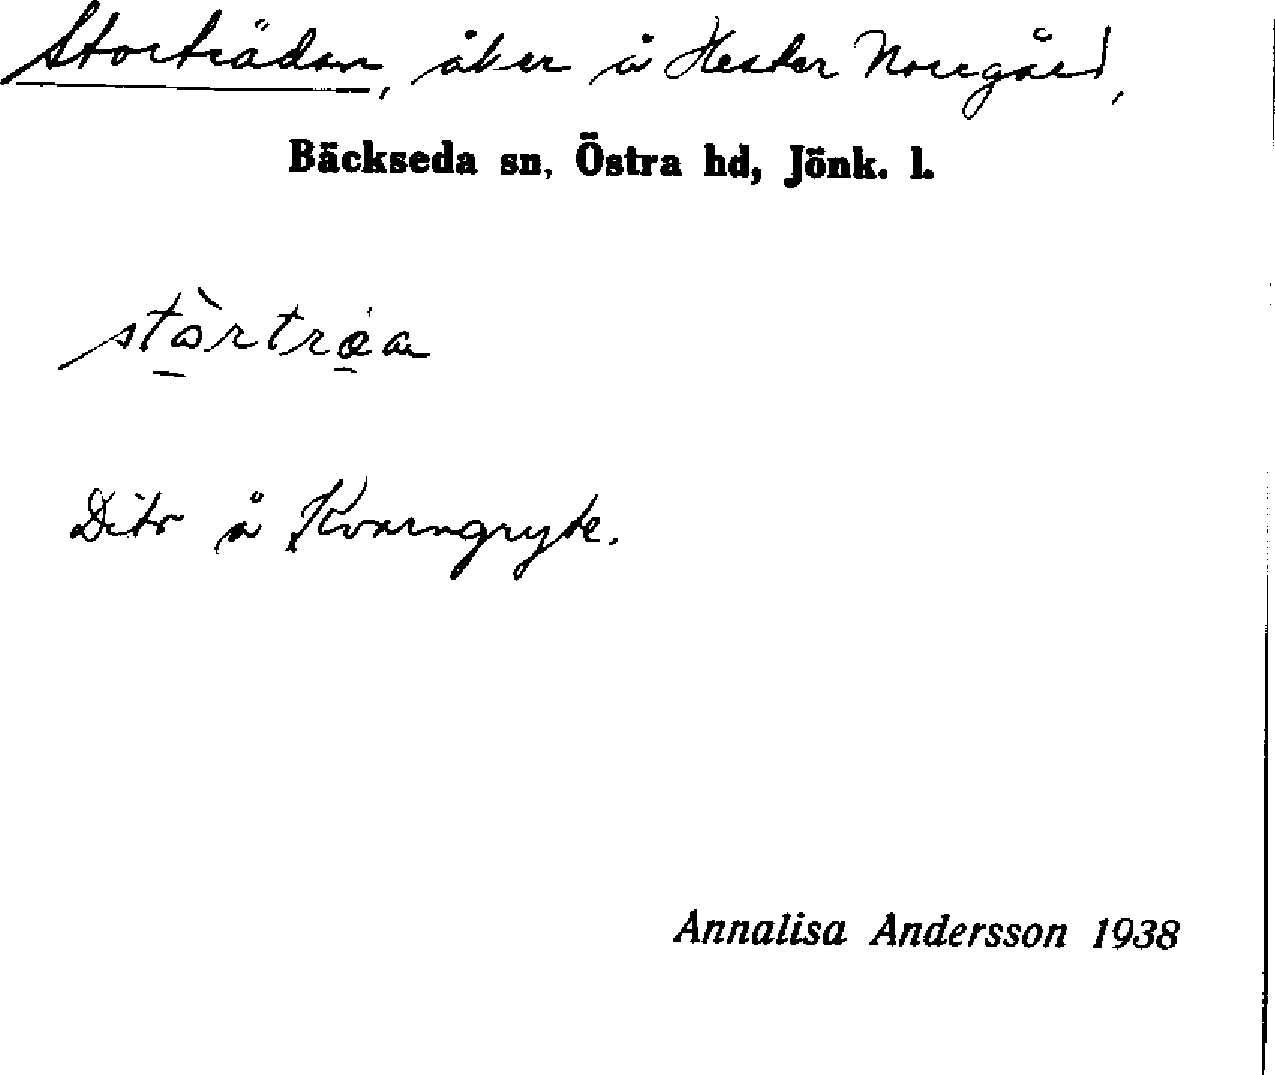 Storträdan, åker å Hester Norrgård,
Bäckseda sn, Östra hd, Jönk. l.
stòrtræa
Dito å Kvarngryte.
Annalisa Andersson 1938